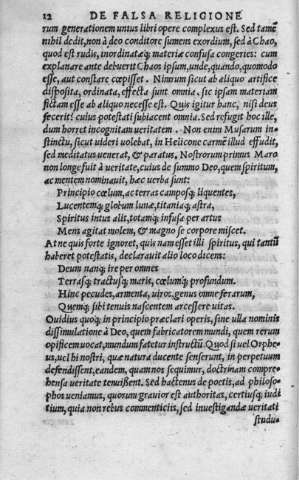 12 DE FALSA RELIGIONE
rum generationem unius libri opere complexus est. Sed tamẽ
nihil dedit, non à deo conditore sumens exordium, sed à Chao,
quod est rudis, inordinataq; materiæ confusa congeries: cum
explanare ante debuerit Chaos ipsum, unde, quando, quomodo
esse, aut constare cœpisset. Nimirum sicut ab aliquo artifice
disposita, ordinata, effecta sunt omnia, sic ipsam materiam
fictam esse ab aliquo necesse est. Quis igitur hanc, nisi deus
fecerit? cuius potestati subiacent omnia. Sed refugit hoc ille,
dum horret incognitam ueritatem. Non enim Musarum in-
stinctu, sicut uideri uolebat, in Helicone carmẽ illud effudit,
sed meditatus uenerat, & paratus. Nostrorum primus Maro
non longe fuit à ueritate, cuius de summo Deo, quem spiritum,
ac mentem nominauit, hæc uerba sunt:
Principio cœlum, ac terras camposq; liquentes,
Lucentemq; globum lunæ, titaniaq; astra,
Spiritus intus alit, totamq; infusa per artus
Mens agitat molem, & magno se corpore miscet.
At ne quis forte ignoret, quis nam esset illi spiritus, qui tantũ
haberet potestatis, declarauit alio loco dicens:
Deum nanq; ire per omnes
Terrasq; tractusq; maris, cœlumq; profundum.
Hinc pecudes, armenta, uiros, genus omne ferarum,
Quemq; sibi tenuis nascentem arcessere uitas.
Ouidius quoq; in principio præclari operis, sine ulla nominis
dissimulatione à Deo, quem fabricatorem mundi, quem rerum
opificem uocat, mundum fatetur instructũ. Quod si uel Orphe-
us, uel hi nostri, quæ natura ducente senserunt, in perpetuum
defendissent, eandem, quam nos sequimur, doctrinam compre-
hensa ueritate tenuissent. Sed hactenus de poetis, ad philoso-
phos ueniamus, quorum grauior est authoritas, certiusq; iudi
tium, quia non rebus commenticiis, sed inuestigandæ ueritati
studu-